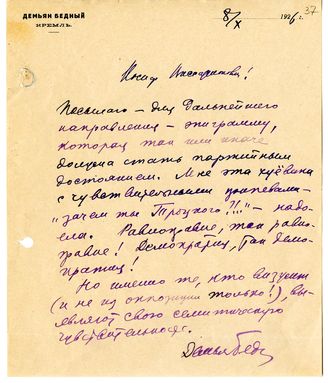 37
ДЕМЬЯН БЕДНЫЙ
КРЕМЛЬ.
8/X 1926 г.
Иосиф Виссарионович!
Посылаю – для дальнейшего
направления – эпиграмму,
которая так или иначе
должна стать партийным
достоянием. Мне эта хуёвина
с чувствительными припевами –
"зачем ты Троцкого?!!" – надо-
ела. Равноправие, так равно-
правие! Демократия, так демо-
кратия!
Но именно те, кто визжит
(и не из оппозиции только!), вы-
являют свою семитическую
чувствительность.
Демьян Бедн